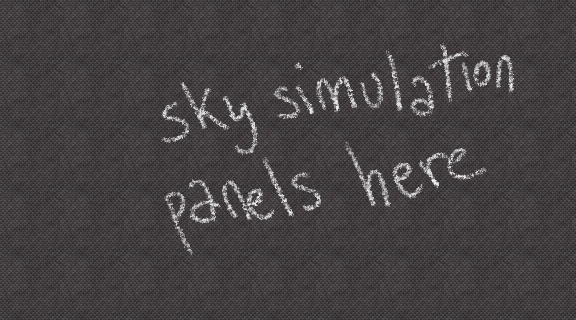 sky simulation
panels here